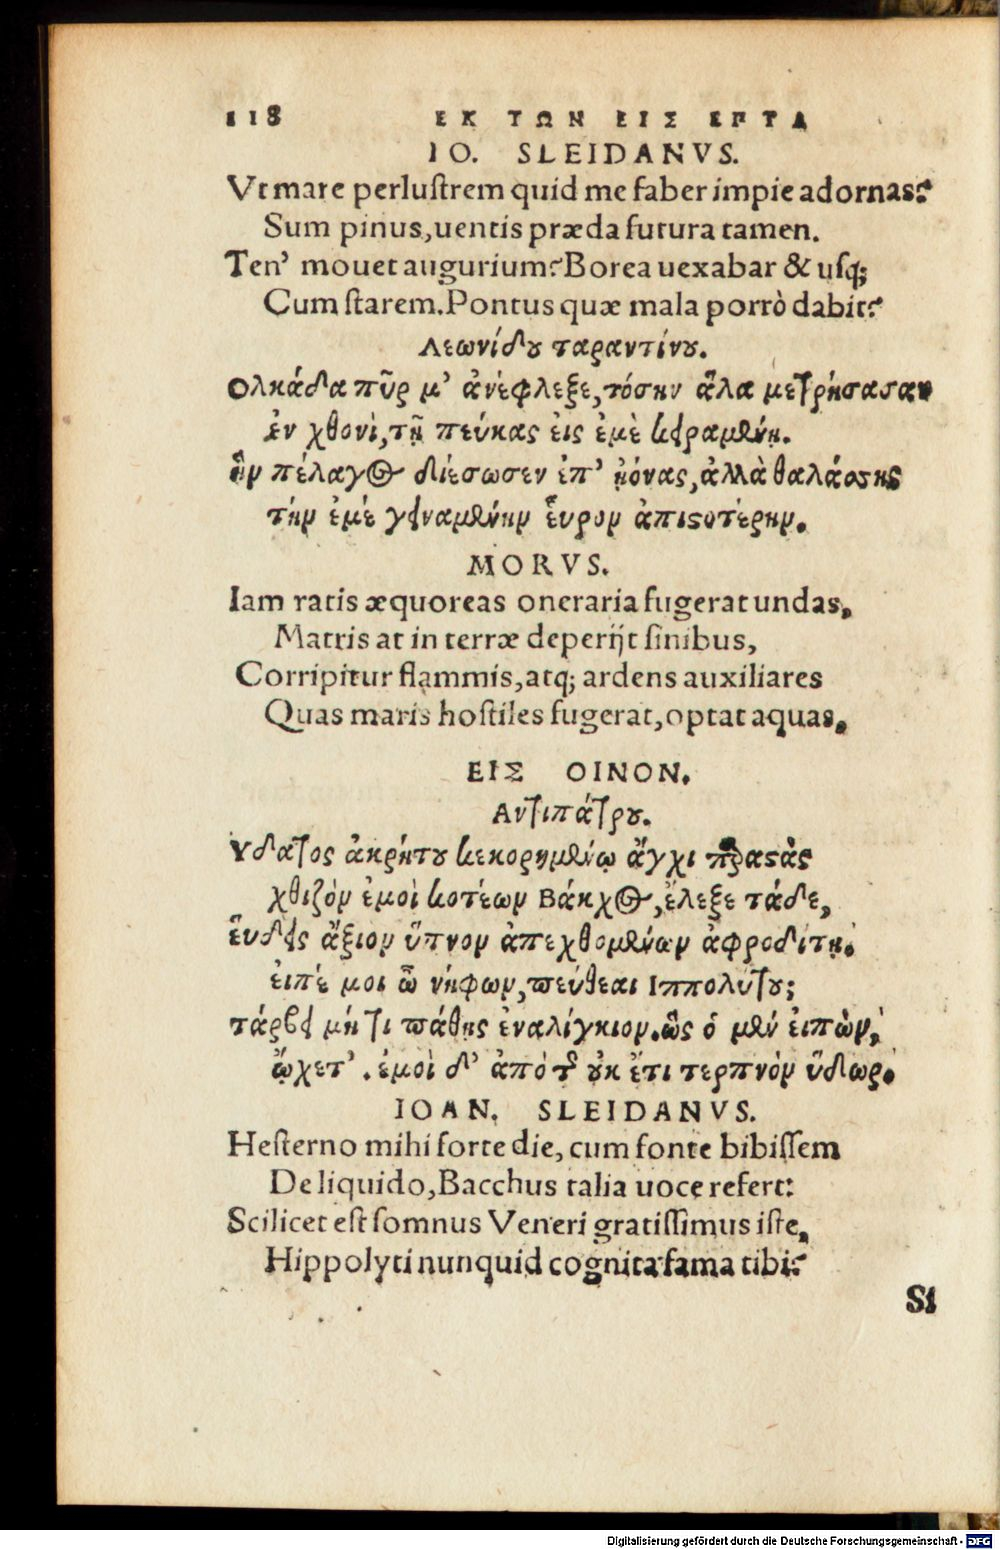 118 ΕΚ ΤΩΝ ΕΙΣ ΕΡΤΑ
IO. SLEIDANVS.
Vt mare perlustrem quid me faber impie adornas?
Sum pinus, uentis præda futura tamen.
Ten' mouet augurium? Borea uexabar & usq;
Cum starem. Pontus quæ mala porrò dabit?
Λεωνίδου ταραντίνου.
Ολκάδα πῦρ μ' ἀνέφλεξε, τόσην ἅλα μετρήσασαν
ἐν χθονὶ, τῇ πεύκας εἰς ἐμὲ κειραμένῃ.
ἣν πέλαγος διέσωσεν ἐπ' ᾐόνας, ἀλλὰ θαλάσσης
τὴν ἐμὲ γειναμένην εὗρον ἀπιστοτέρην.
MORVS.
Iam ratis æquoreas oneraria fugerat undas,
Matris at in terræ deperijt sinibus,
Corripitur flammis, atq; ardens auxiliares
Quas maris hostiles fugerat, optat aquas.
ΕΙΣ ΟΙΝΟΝ.
Αντιπάτρου.
Υδατος ἀκρήτου κεκορημένῳ ἄγχι παραστὰς
χθιζὸν ἐμοὶ κοτέων Βάκχος, ἔλεξε τάδε,
εὕδεις ἄξιον ὕπνον ἀπεχθομένων ἀφροδίτῃ.
εἰπέ μοι ὦ νήφων, πεύθεαι Ιππολύτου;
τάρβει μή τι πάθῃς ἐναλίγκιον. ὣς ὁ μὲν εἰπὼν,
ᾤχετ'. ἐμοὶ δ' ἀπὸ τοῦ οὐκ ἔτι τερπνὸν ὕδωρ.
IOAN. SLEIDANVS.
Hesterno mihi forte die, cum fonte bibissem
De liquido, Bacchus talia uoce refert:
Scilicet est somnus Veneri gratissimus iste,
Hippolyti nunquid cognita fama tibi?
Si
Digitalisierung gefördert durch die Deutsche Forschungsgemeinschaft - DFG